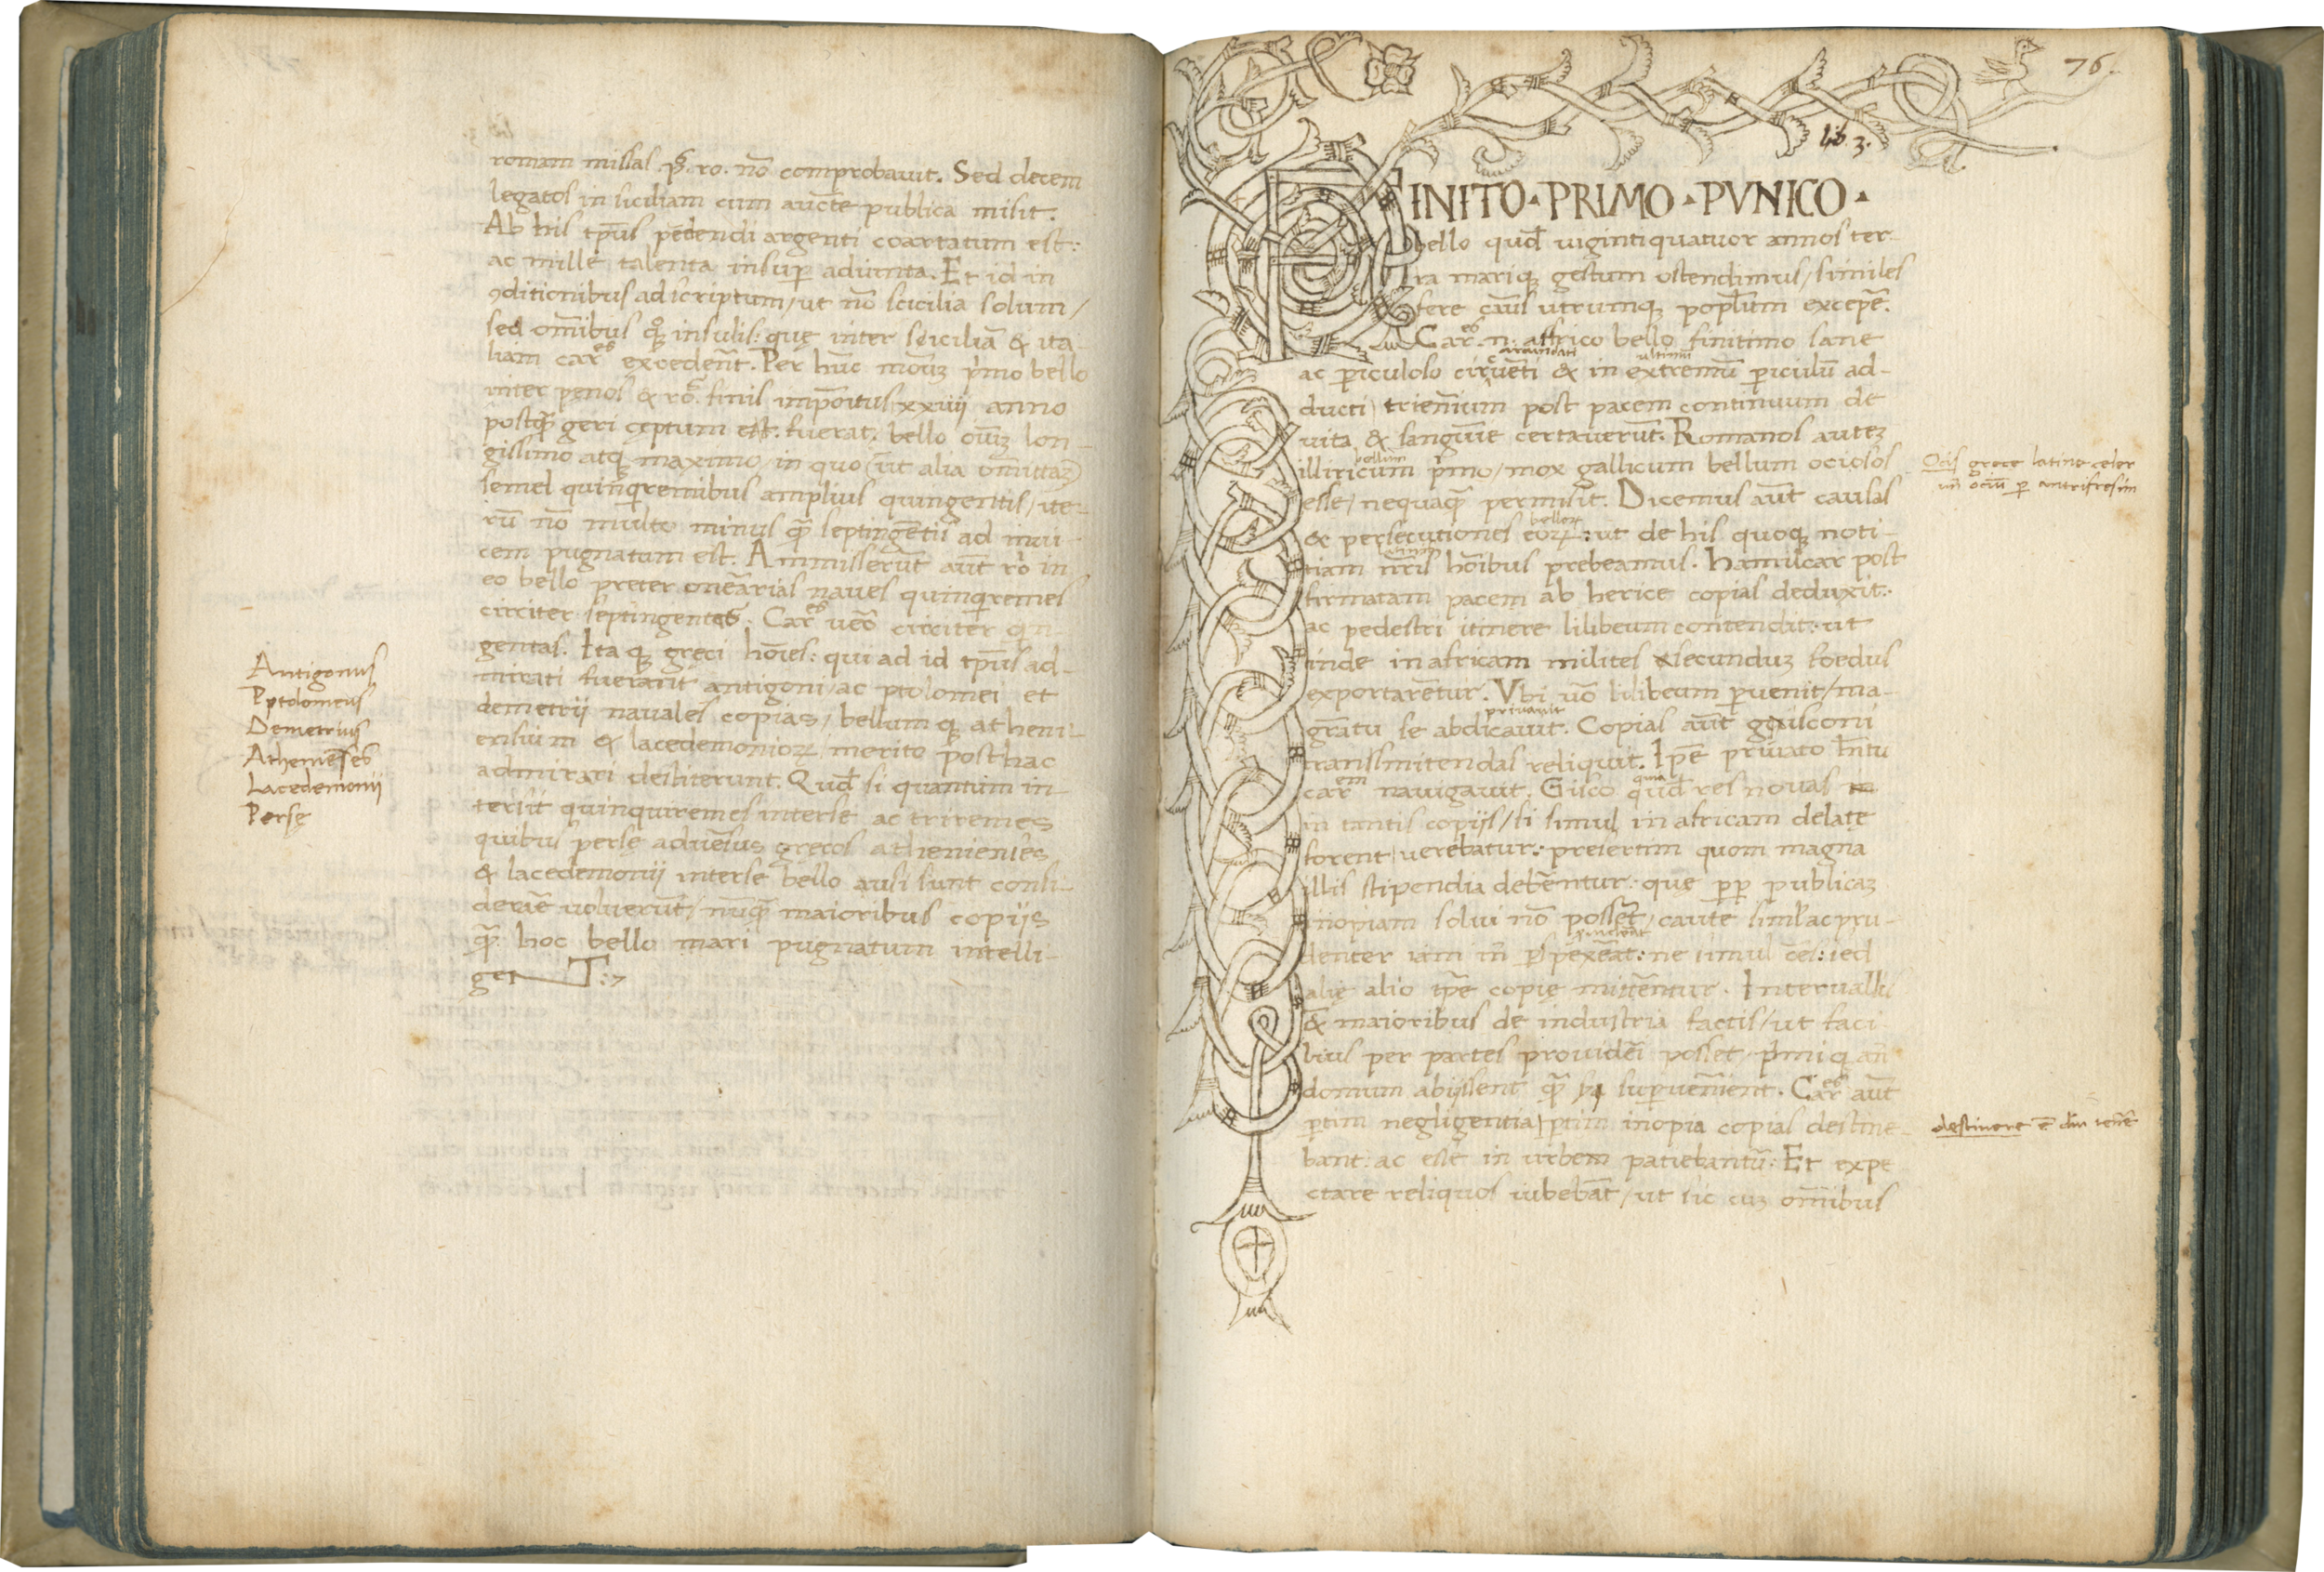 romam missas .p̄.ro. nō comprobauit. Sed decem
legatos in siciliam cum auctē publica misit.
Ab his tp̄us pēdendi argenti coartatum est:
ac mille talenta insup̱ adiuncta. Et id in
ꝯditionibus adscriptum / ut nō scicilia solum /
sed om̄ibus qͦꝫ insulis: que inter siciciliā & ita-
liam carᵉˢ excedenт̄. Per hūc modūꝫ p̄mo bello
inter penos & rō. finis impoitus xxiiij anno
postq̄ geri ceptum est. fuerat. bello oīuꝫ lon-
gissimo atqꝫ maximo / in quo (ut alia omittāꝫ)
semel quinq̄remibus amplius quingentis / ite-
rū nō multo minus q̄ septingentis ad inui-
cem pugnatum est. Ammisserunt aūt ro in
eo bello preter onerarias naues quinq̄remes
circiter septingentas. Carᵉˢ uēo circiter qn-
gentas. Itaqꝫ greci hōies: qui ad id tp̄us ad-
mirati fuerant antigoni / ac ptolomei et
demetrij nauales copias / bellumqꝫ atheni-
ensium & lacedemonioꝝ merito posthac
admirari destiterunt. Qud̄ si quantum in-
tersit quinquiremes interse ac triremes
quibus perse aduēsus grecos athenienses
& lacedemonij interse bello ausi sunt consi-
derare uoluerūt / nūq̄ maioribus copijs
q̄ hoc bello mari pugnatum intelli-
get T:7
Antigonus
Pptolomeus
Demetrius
Athenieses
Lacedemonij
Perse
76.
lib. 3.
FINITO · PRIMO · PVNICO ·
bello qud̄ uigintiquatuor annos ter-
ra mariqꝫ gestum ostendimus / similes
fere cāus utrumqꝫ poplūm excepē.
Carᵉˢ .n. affrico bello finitimo sane
ac p̱iculoso circuēti & in extremū p̱iculū ad-
ultimū
ducti / trieniūm post pacem continuum de
uita & sanguīe certauerūt. Romanos auteꝫ
bellum
illiricum p̄mo / mox gallicum bellum ociosos
esse / nequaq̄ permisit. Dicemus aūt causas
belloꝝ
& persecutiones eoꝝ: ut de his quoqꝫ noti-
tiam nr̄is hōibus prebeamus. Hamilcar post
firmatam pacem ab herice copias deduxit:
ac pedestri itinere lilibeum contendit: ut
inde in africam milites secunduꝫ foedus
exportarētur. Vbi uō lilibeum p̱uenit / ma-
priuauit
gr̄atu se abdicauit. Copias aūt guisconi
transmitendas reliquit. Ipē priuato
quia
carᵉᵐ nauigauit. Gisco qud̄ res nouas
in tantis copijs / si simul in africam delate
forent / uerebatur: presertim quom magna
illis stipendia debēntur: que p̱p̱ publicaꝫ
inopiam solui nō possēt / caute siml̄ ac pru-
denter iam ne simul ōes: sed
alie alio tp̄e copie mittērentur. Interuallis
& maioribus de industria factis / ut faci
lius per partes prouideri posset / p̄miqꝫ an
domum abijssent q̄ superuenient. Carᵉˢ aūt
p̱tim negligentia / p̱tim inopia copias destine-
bant: ac esse in urbem patiebantū: Et expe
ctare reliquos iubebāt / ut sic cuꝫ om̄ibus
Ocis grece latine celer
un̄ ociū p̱ antifrasim
destinere ē diu tenēe